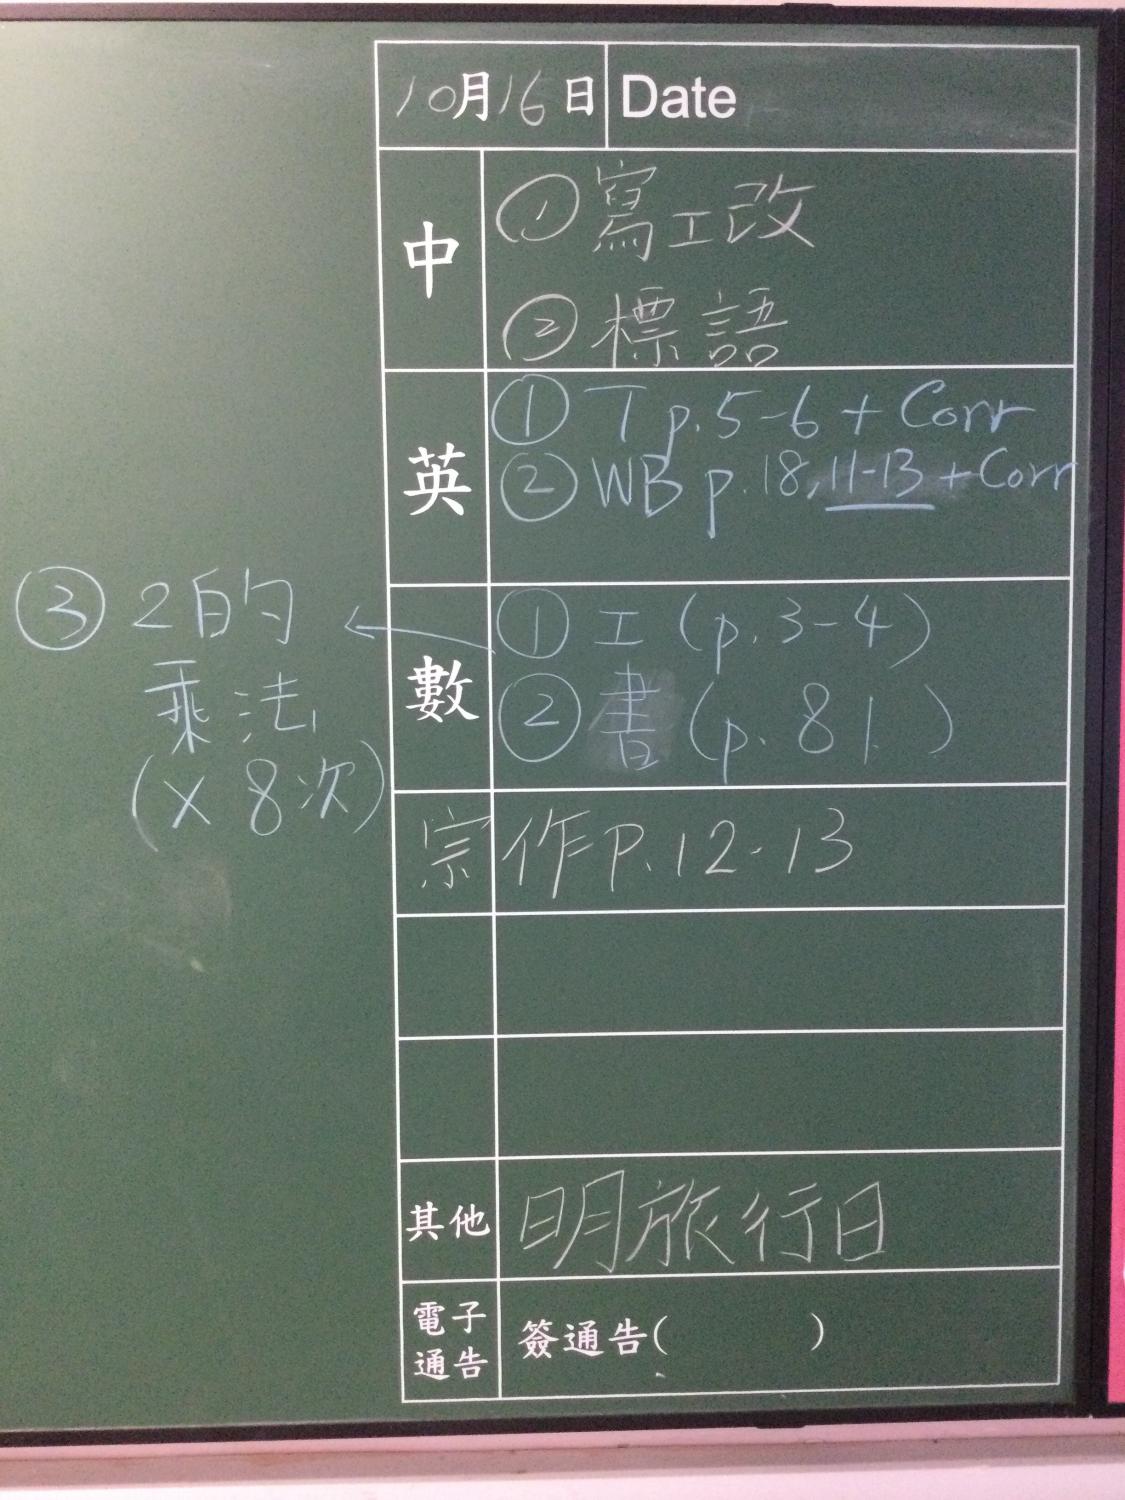 10月16日 Date
中
① 寫工改
② 標語
英
① T p.5-6 + Corr
② WB p.18, 11-13 + Corr
數
① 工 (p.3-4)
② 書 (p.81)
③ 2的
乘法
(× 8次)
宗 作 P.12-13
其他 明旅行日
電子
通告
簽通告( )